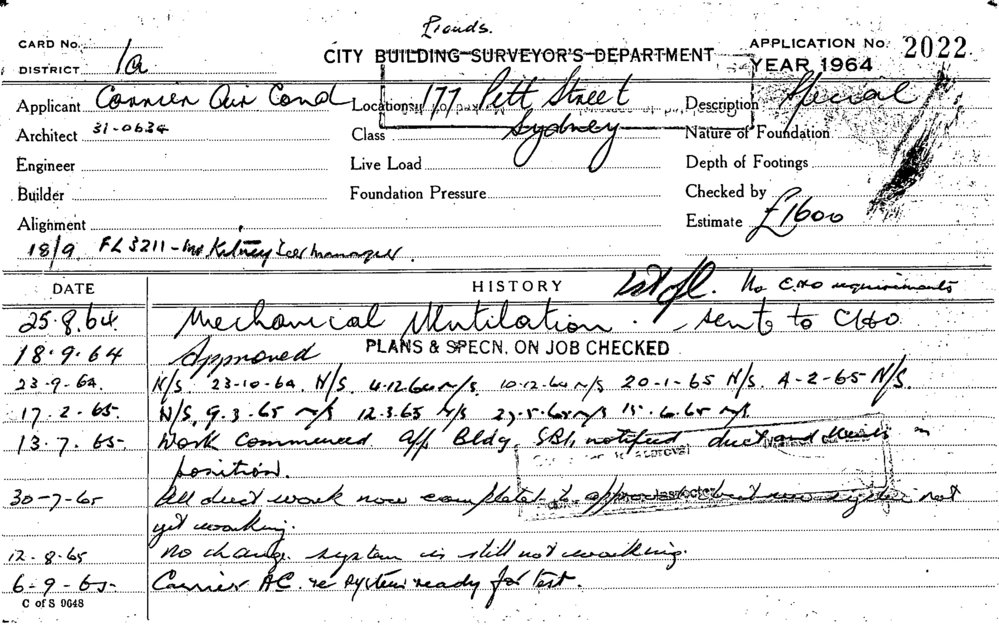 CARD No. 1a
CITY BUILDING SURVEYOR'S DEPARTMENT
APPLICATION No. 2022
DISTRICT
YEAR 1964
Applicant Carrier Air Cond Location 177 Pitt Street Sydney Description Special
Architect 31-0634 Class Nature of Foundation
Engineer Live Load Depth of Footings
Builder Foundation Pressure Checked by
Alignment Estimate £1600
18/9 FL 3211 - Mr Kitney manager.
DATE HISTORY No C.H.O requirements
25.8.64. Mechanical Ventilation. sent to CHO
18.9.64 Approved PLANS & SPECN. ON JOB CHECKED
23-9-64. N/S. 23-10-64. N/S. 4.12.64 N/S. 10.12.64 N/S 20-1-65 N/S. 4-2-65 N/S.
17.2.65. N/S. 9.3.65 N/S 12.3.65 N/S 15.6.65 N/S
13.7.65- Work commenced notified duct and in
position.
30-7-65 All duct work now complete to but system not
yet working.
12-8-65 No change system is still not working.
6-9-65- Carrier AC. re system ready for test.
C of S 9648